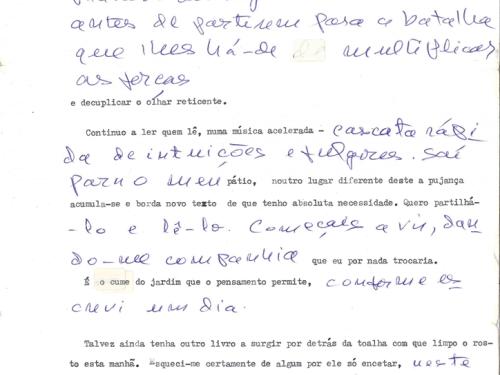 antes de partirem para a batalha
que lhes há-de multiplicar
as forças
e decuplicar o olhar reticente.
Continuo a ler quem lê, numa música acelerada - cascata rápi
da de intuições e fulgores. Saí
para o meu pátio, noutro lugar diferente deste a pujança
acumula-se e borda novo texto de que tenho absoluta necessidade. Quero partilhá-
-lo e lê-lo. Começais a vir, dan
do-me companhia que eu por nada trocaria.
É o cume do jardim que o pensamento permite, conforme es
crevi um dia.
Talvez ainda tenha outro livro a surgir por detrás da toalha com que limpo o ros-
to esta manhã. Esqueci-me certamente de algum por ele só encetar, neste